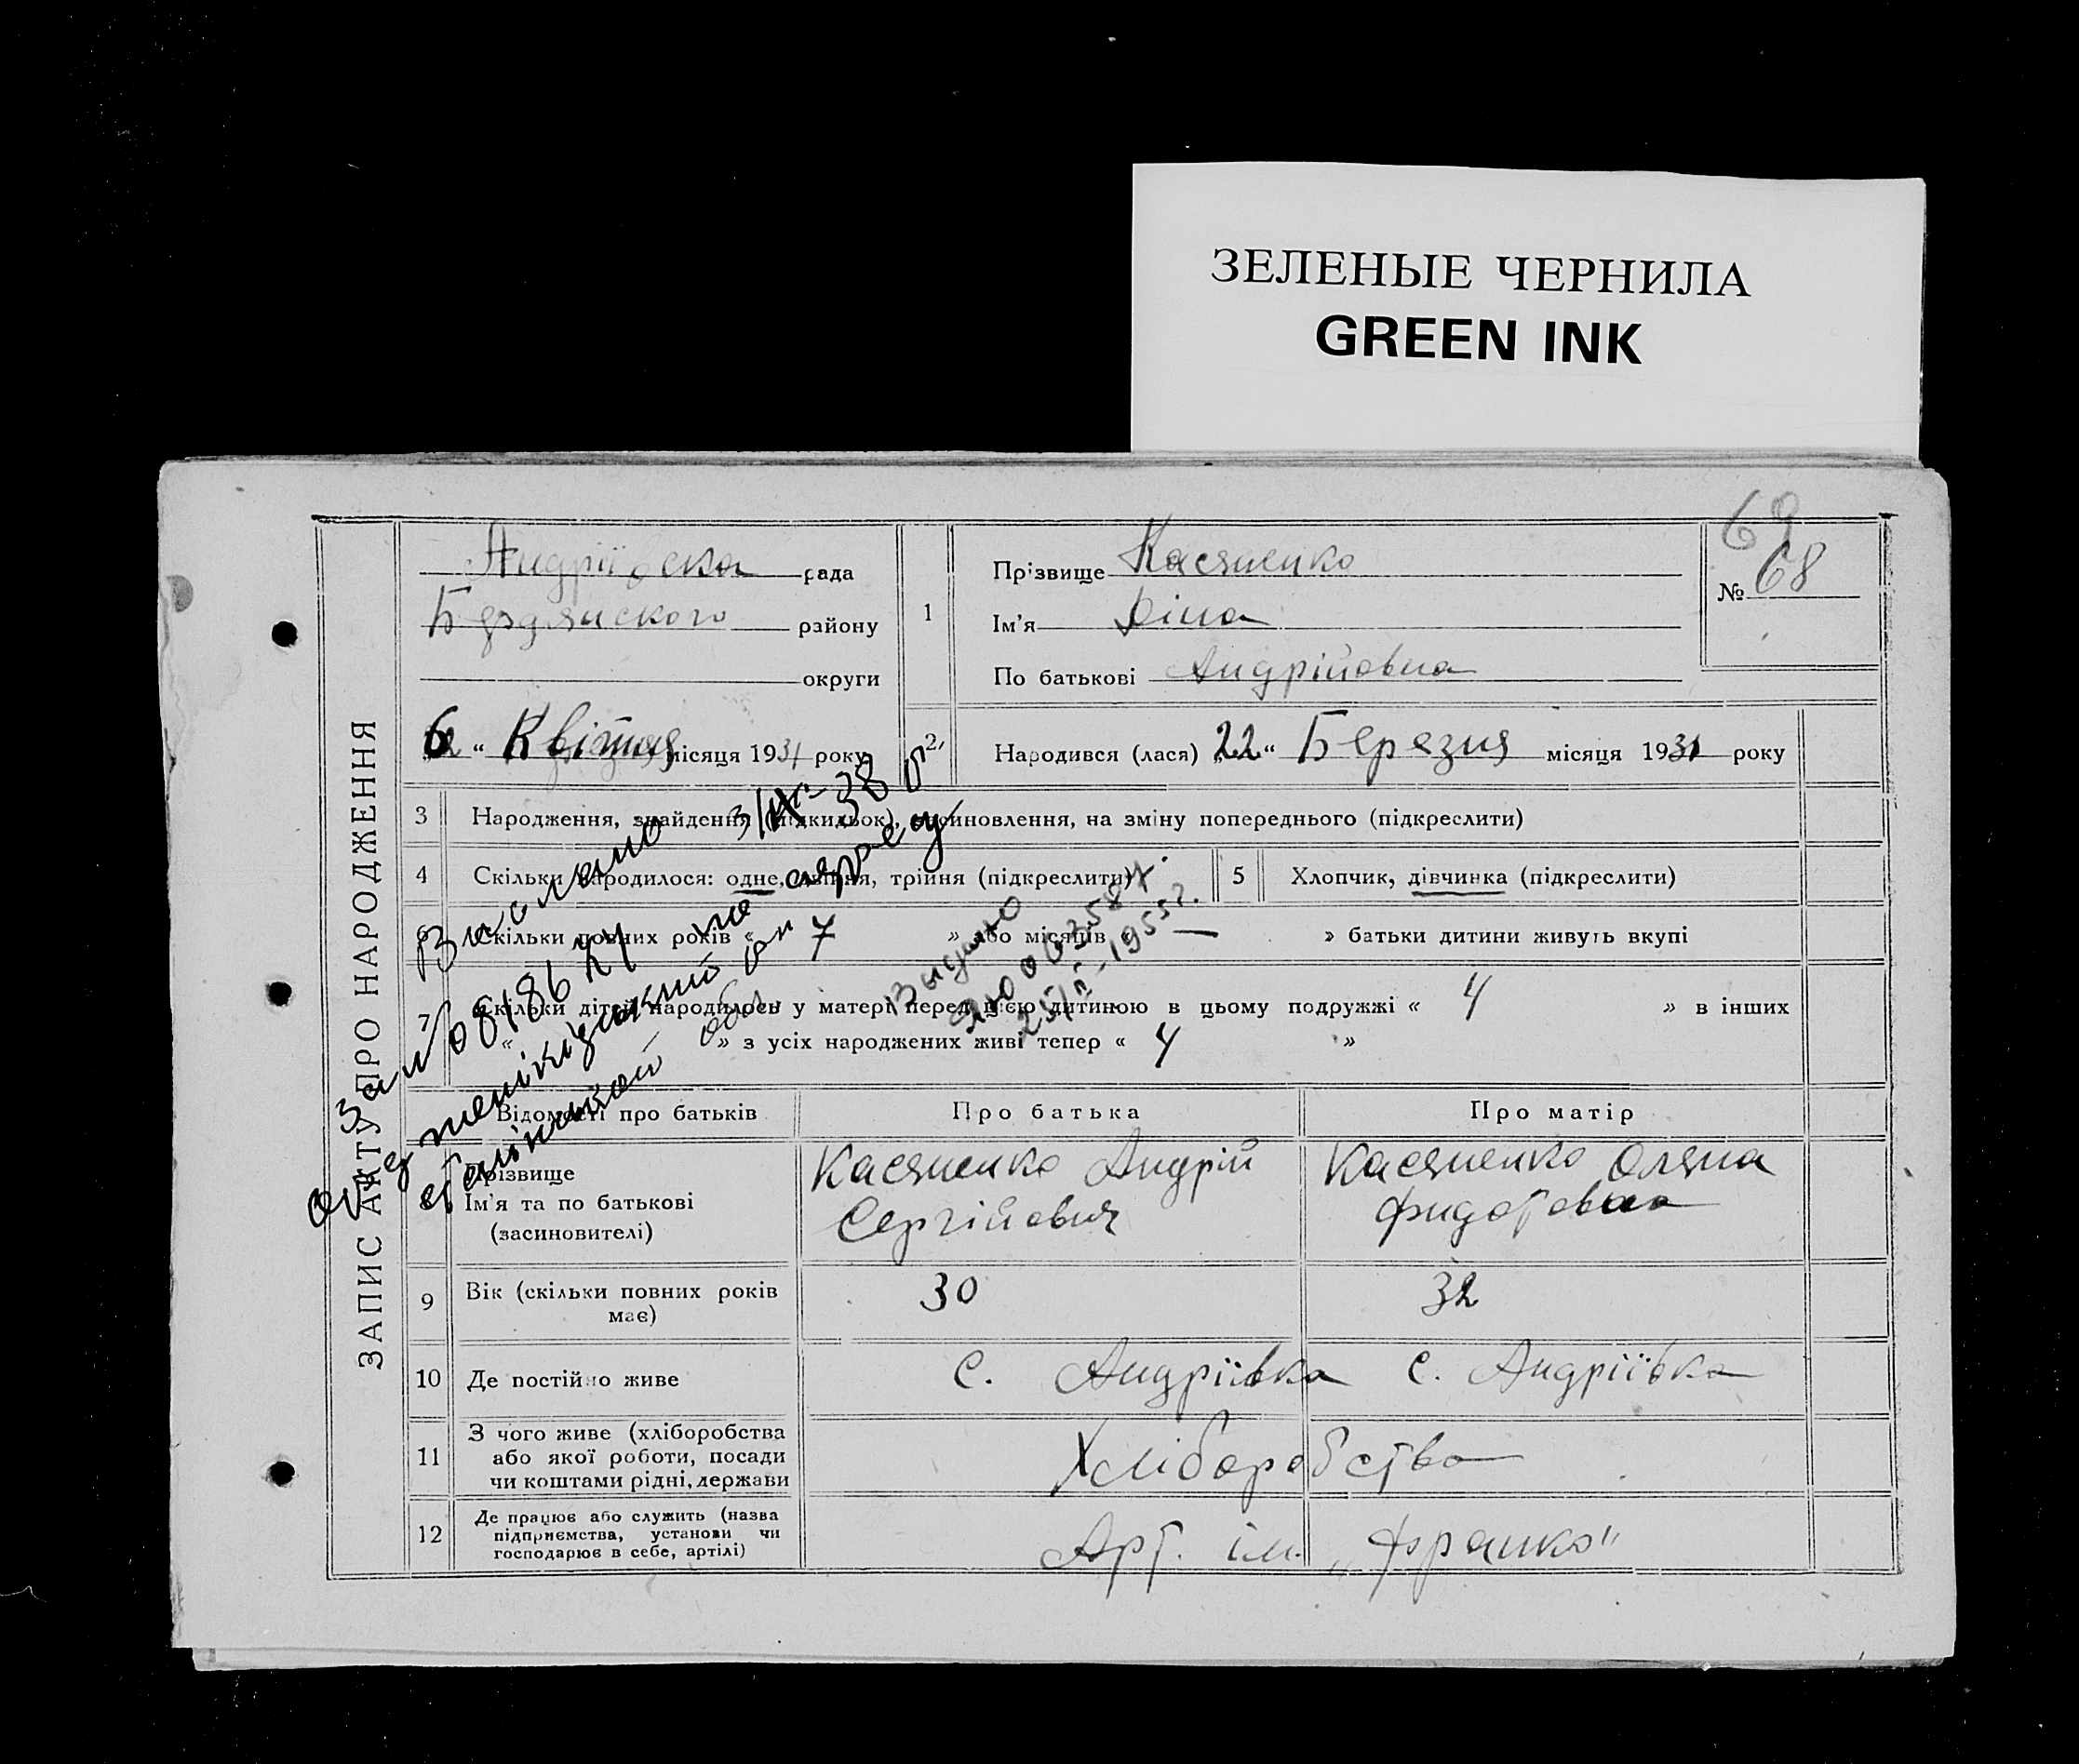 ЗЕЛЕНЫЕ ЧЕРНИЛА
GREEN INK
ЗАПИС АКТУ ПРО НАРОДЖЕННЯ
Андріївска рада
Бердянского району
округи
6 " Квітня місяця 1931 року
1
Прізвище Касяненко
Ім'я Діна
По батькові Андрійовна
69
№ 68
2
Народився (лася) 22 " Березня місяця 1931 року
3 Народження, знайдення (підкидьок), усиновлення, на зміну попереднього (підкреслити)
4 Скільки народилося: одне, двійня, трійня (підкреслити)
5 Хлопчик, дівчинка (підкреслити)
6 Скільки повних років « 7 » або місяців « — » батьки дитини живуть вкупі
7 Скільки дітей народилось у матері перед цією дитиною в цьому подружжі « 4 » в інших
« » з усіх народжених живі тепер « 4 »
Вислано 3/IV-38 р
За № 08186 КУ на адресу
обл.
Выдано
25/II-1955 г.
Відомості про батьків
Про батька
Про матір
Прізвище
Ім'я та по батькові
(засиновителі)
Касяненко Андрій
Сергійович
Касяненко Оляна
Фидотовна
9 Вік (скільки повних років
має)
30
32
10 Де постійно живе
с. Андріївка
с. Андріївка
11 З чого живе (хліборобства
або якої роботи, посади
чи коштами рідні, держави
Хліборобство
12 Де працює або служить (назва
підприємства, установи чи
господарює в себе, артілі)
Арт. ім. „Франко"